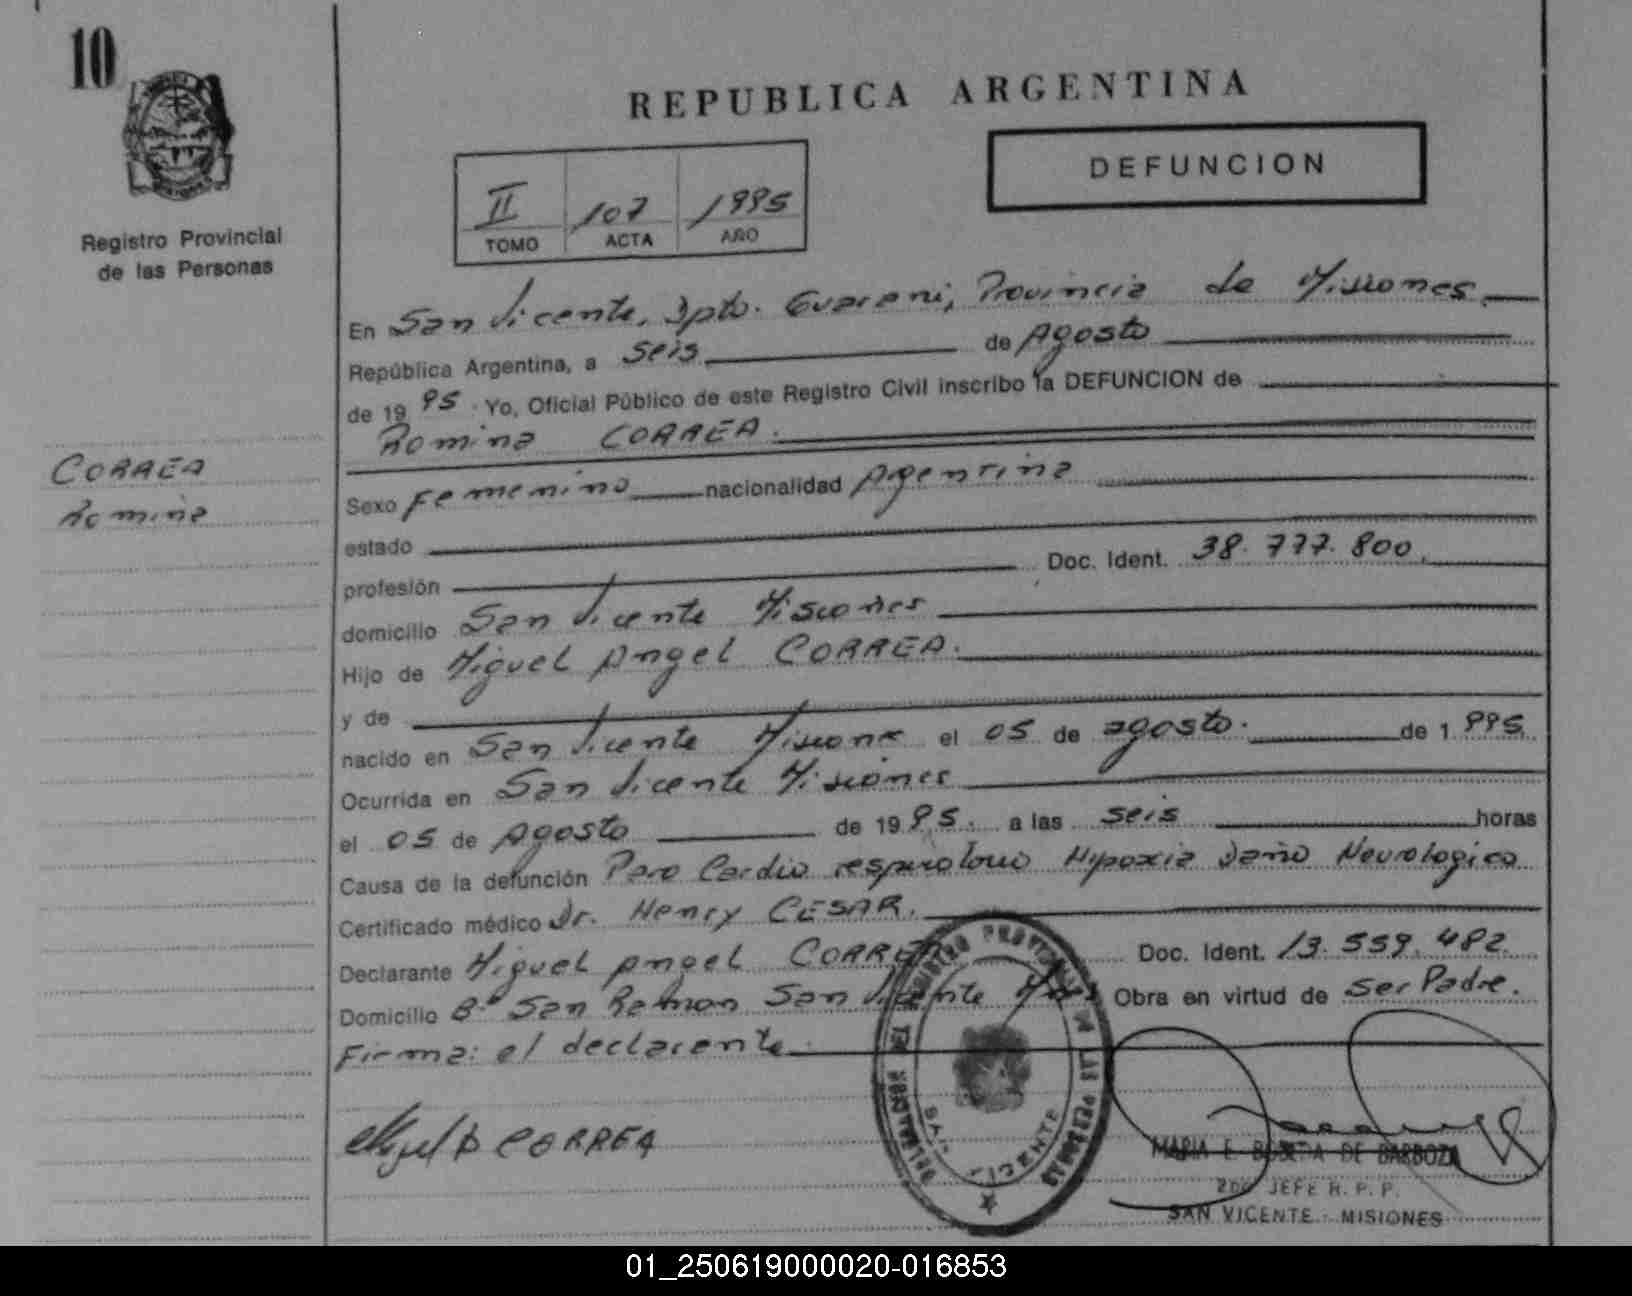 10
REPUBLICA ARGENTINA
DEFUNCION
II 107 1995
TOMO ACTA AÑO
Registro Provincial
de las Personas
En San Vicente, Dpto. Guarani, Provincia de Misiones
República Argentina, a seis de Agosto
de 1995. Yo, Oficial Público de este Registro Civil inscribo la DEFUNCION de
Romina CORREA.
CORREA
Romina
Sexo Femenino nacionalidad Argentina
estado
profesión Doc. Ident. 38.777.800.
domicilio San Vicente Misiones
Hijo de Miguel Angel CORREA.
y de
nacido en San Vicente Misiones el 05 de agosto. de 1995
Ocurrida en San Vicente Misiones
el 05 de Agosto de 1995. a las seis horas
Causa de la defunción Paro Cardio respiratorio Hipoxia Daño Neurologico
Certificado médico Dr. Henry CESAR.
Declarante Miguel Angel CORREA Doc. Ident. 13.559.482.
Domicilio B° San Ramon San Vicente Mnes Obra en virtud de Ser Padre.
Firma: el declarante.
Miguel A CORREA
REGISTRO PROVINCIAL DE LAS PERSONAS
SAN VICENTE
MARIA E. BOBEDA DE BARBOZA
2do JEFE R. P. P.
SAN VICENTE - MISIONES
01_250619000020-016853